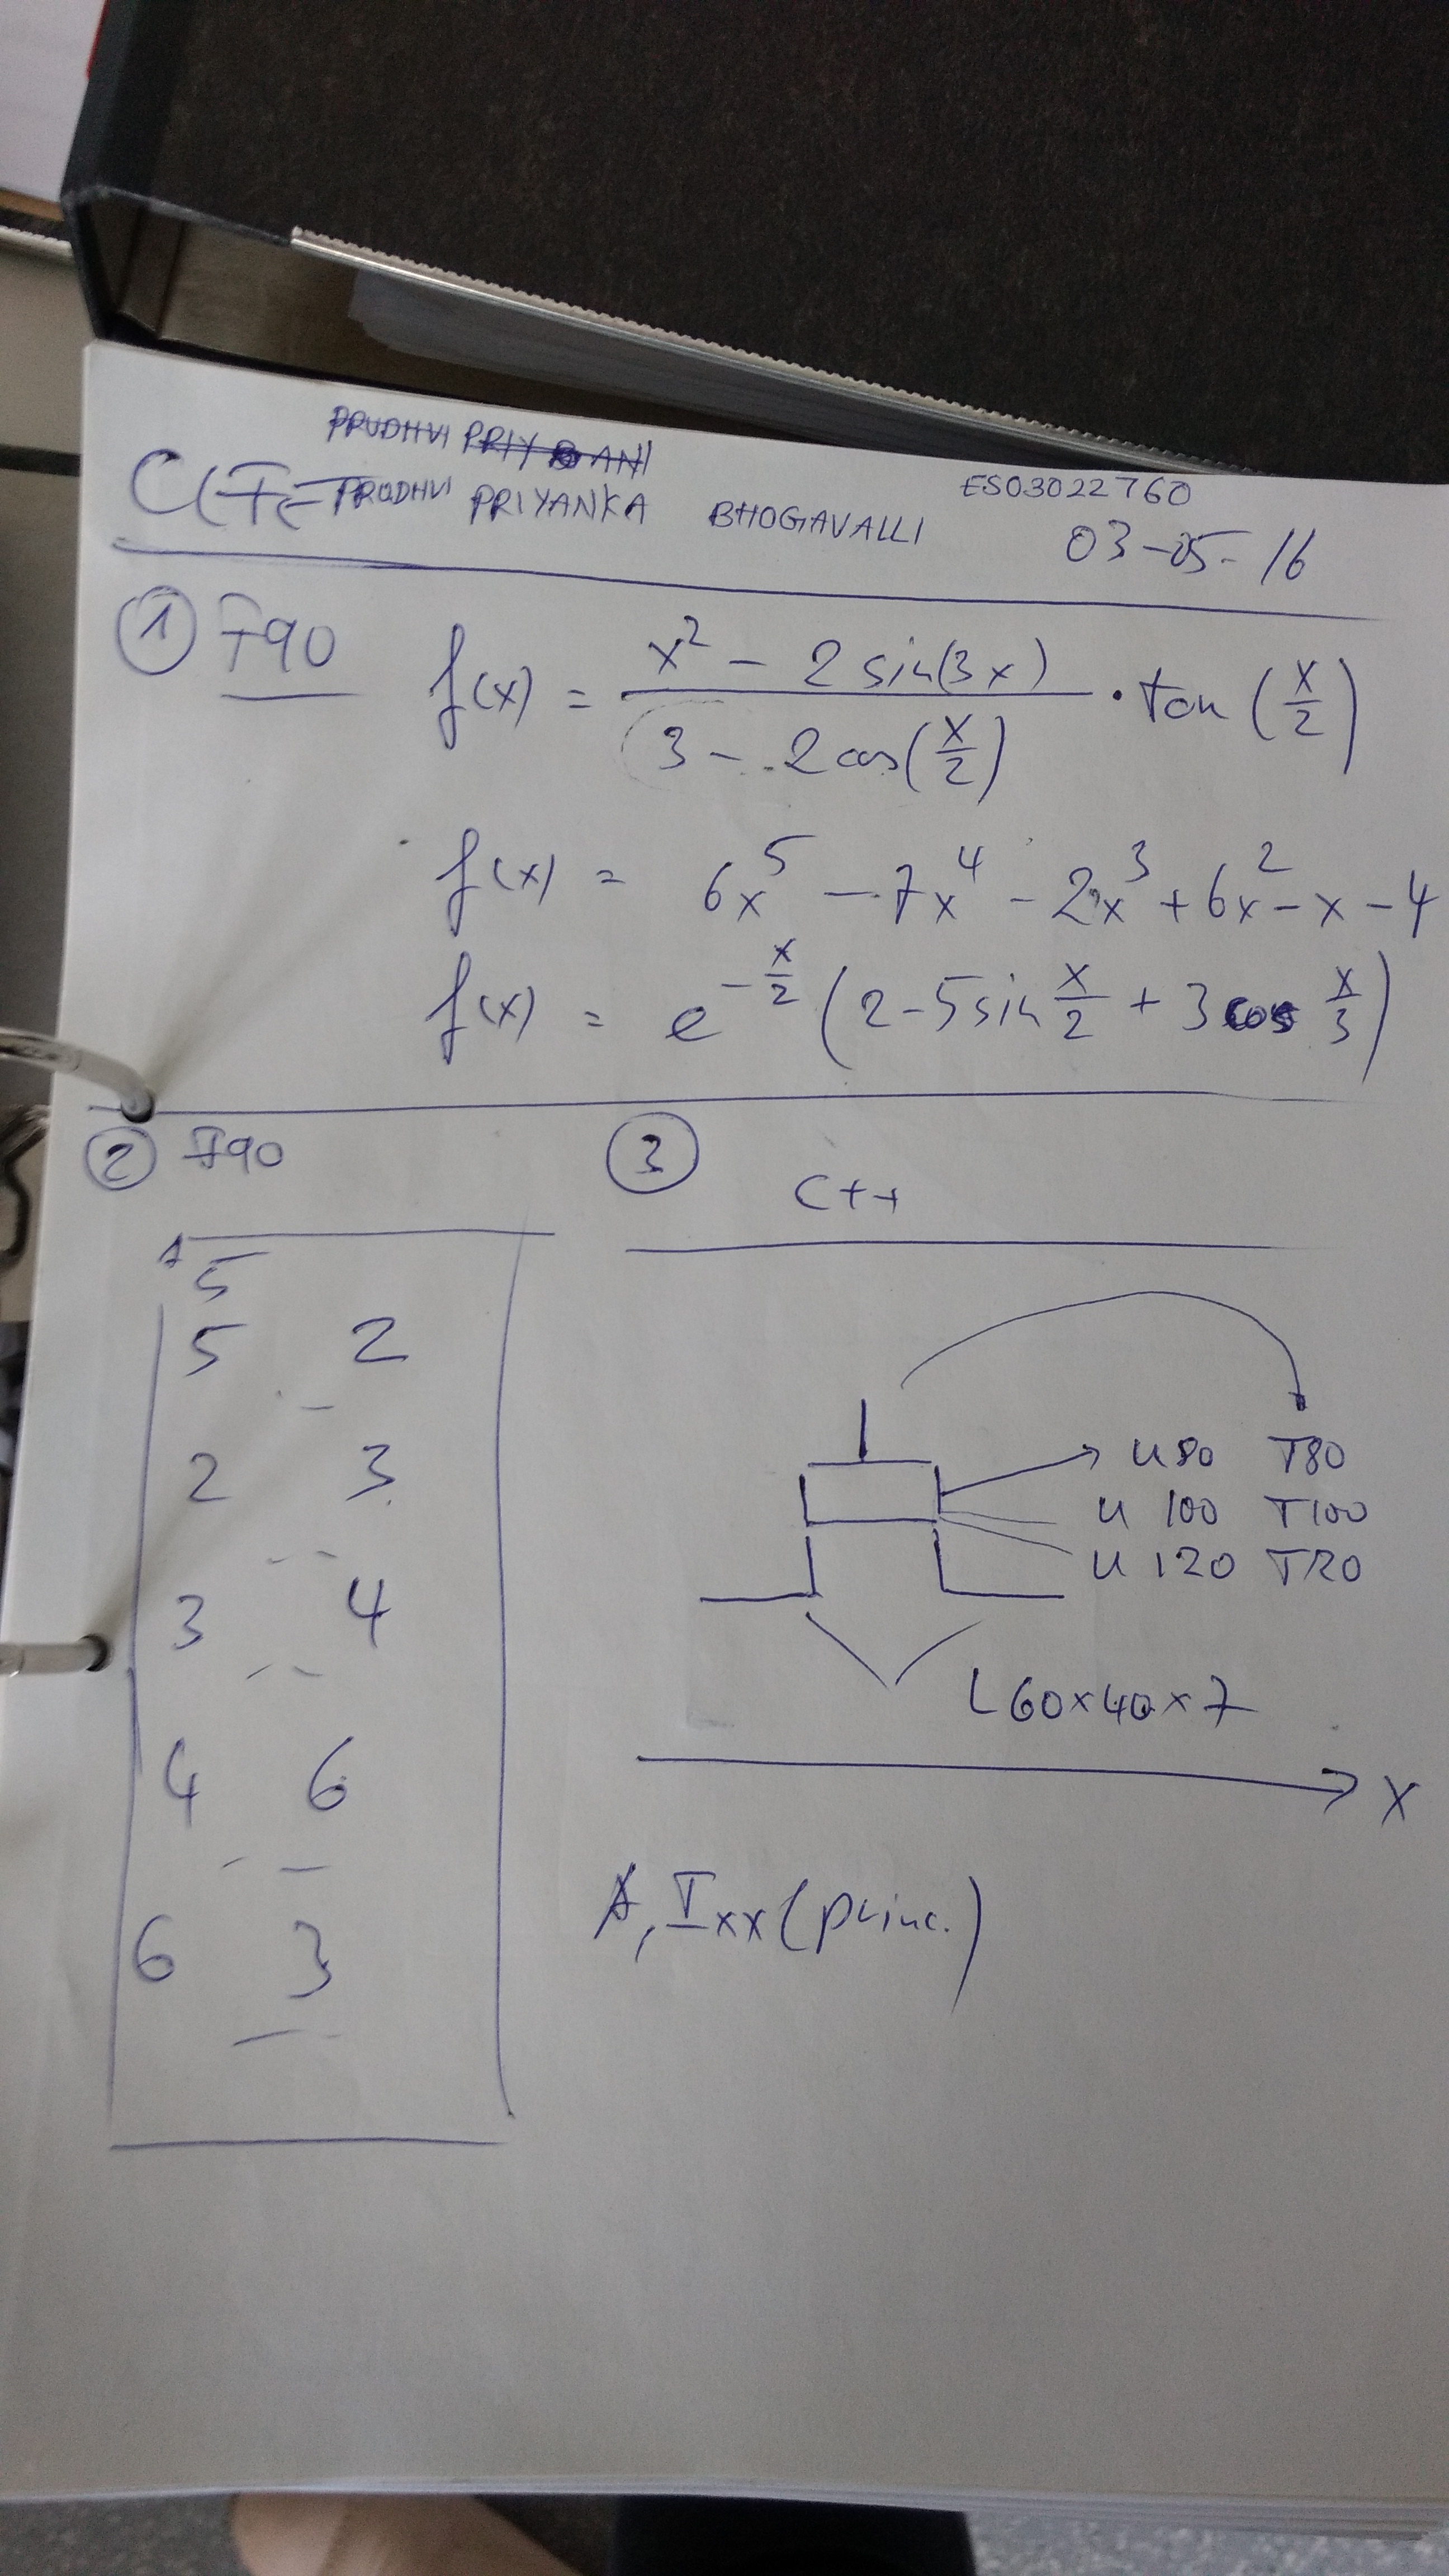 PRUDHVI PRIY ANI
PRUDHVI PRIYANKA BHOGAVALLI ES03022760
03-05-16
① F90 f(x) = (x² - 2 sin(3x)) / (3 - 2 cos(x/2)) · tan(x/2)
f(x) = 6x⁵ - 7x⁴ - 2x³ + 6x² - x - 4
f(x) = e^(-x/2) (2 - 5 sin x/2 + 3 cos x/3)
② F90
5
5 2
2 3
3 4
4 6
6 3
③ C++
U80 T80
U 100 T100
U 120 T120
L60x40x7
x
A, Ixx (princ.)